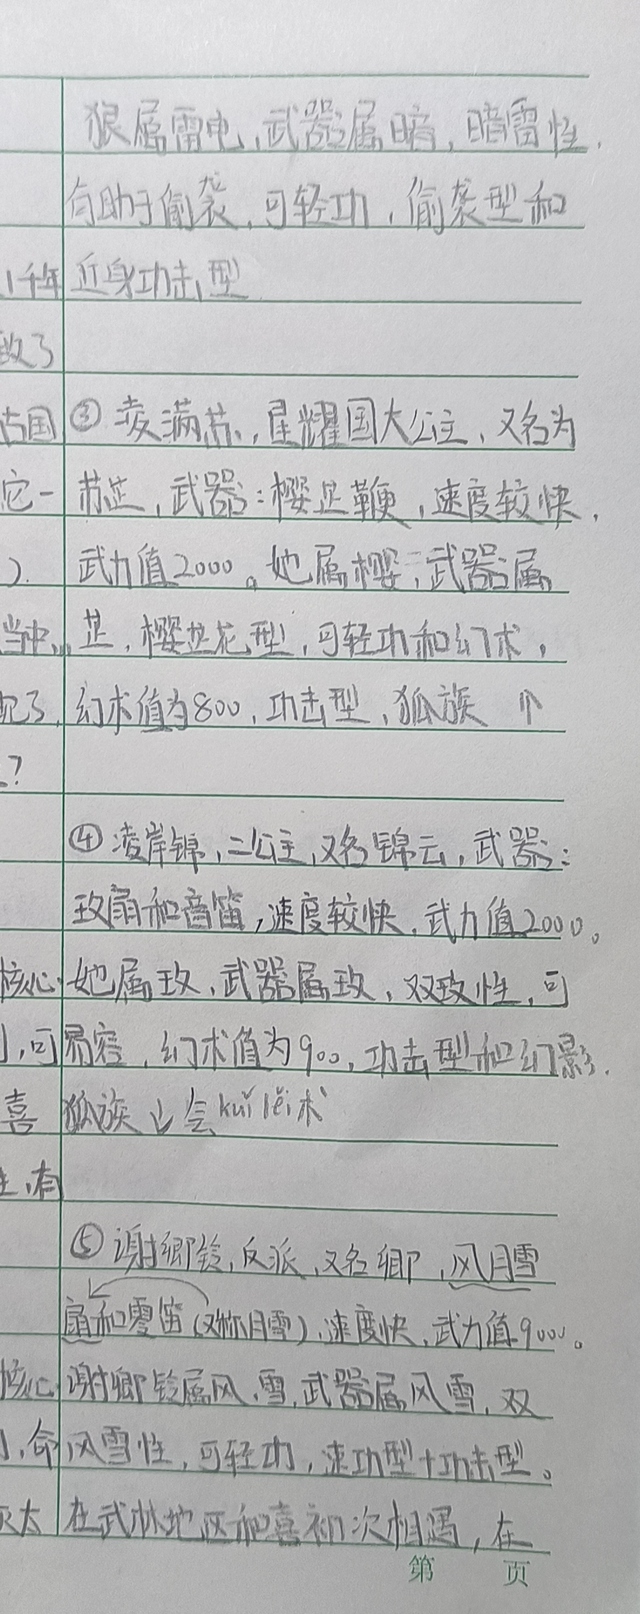 狠属雷电,武器属暗,暗雷性,
有助于偷袭,可轻功,偷袭型和
1千年
近身功击型
致了
古国
③凌满苏,星耀国大公主,又名为
它一
苏芷,武器:樱芷鞭,速度较快,
).
武力值2000。她属樱,武器属
当中,
芷,樱芷花型,可轻功和幻术,
配了,
幻术值为800,功击型,狐族 ↑
?
④凌岸锦,二公主,又名锦云,武器:
玫扇和音笛,速度较快,武力值2000。
核心
她属玫,武器属玫,双玫性,可
,可
易容,幻术值为900,功击型和幻影.
喜
狐族↓会kuǐ lěi术
,有
⑤谢卿铃,反派,又名卿,风月雪
扇和零笛(又称月雪),速度快,武力值9000。
核心
谢卿铃属风,雪,武器属风雪,双
,命
风雪性,可轻功,速功型+功击型。
太
在武林地区和喜初次相遇,在
第 页